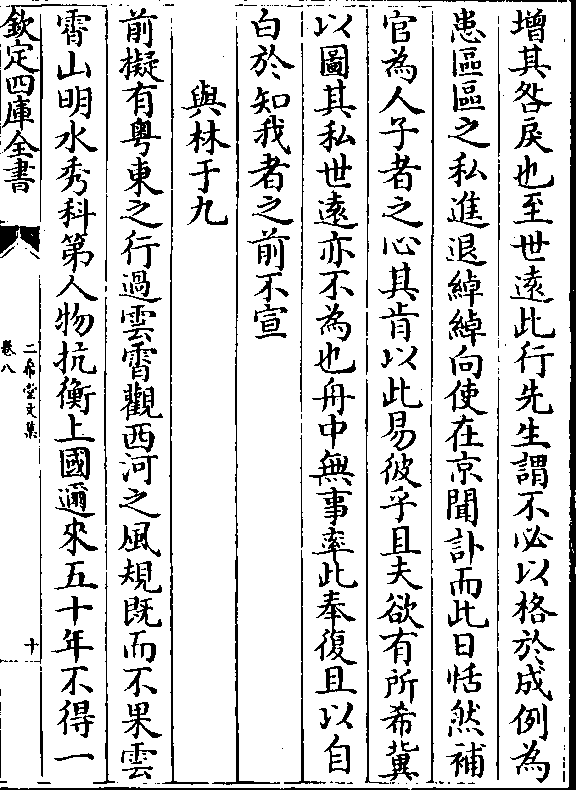 增其咎戾也至世遠此行先生謂不必以格於成例為
患區區之私進退綽綽向使在京聞訃而此日恬然補
官為人子者之心其肯以此易彼乎且夫欲有所希冀
以圖其私世遠亦不為也舟中無事率此奉復且以自
白於知我者之前不宣
與林于九
前擬有粵東之行過雲霄觀西河之風規既而不果雲
霄山明水秀科第人物抗衡上國邇來五十年不得一
欽定四庫全書
二希堂文集
卷八
十